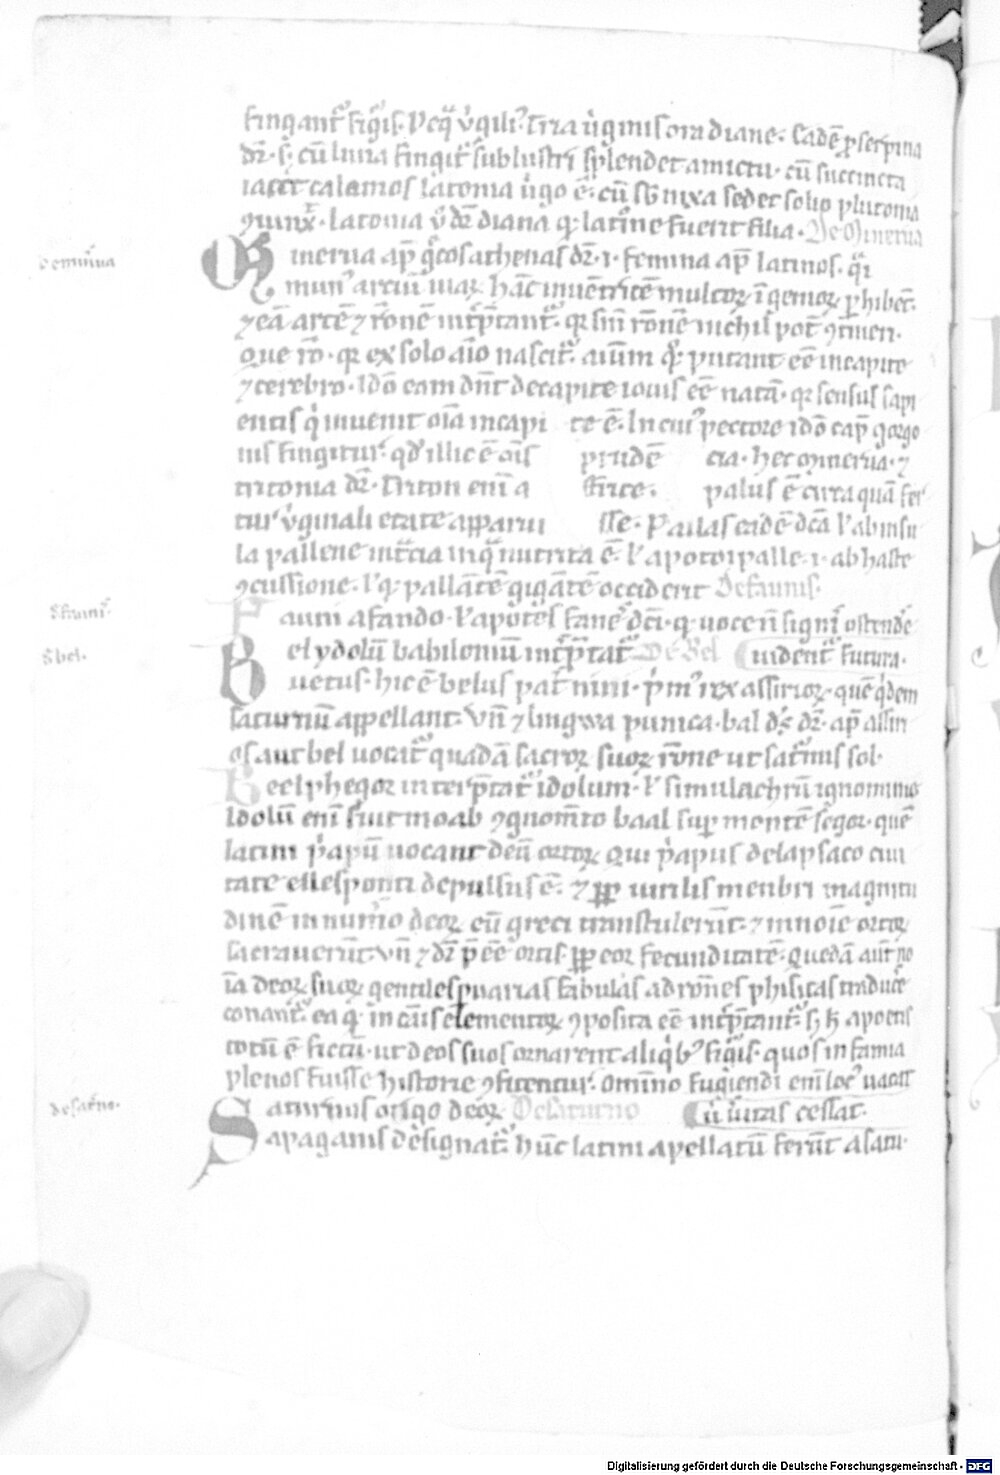 fingant᷑ fiḡis. Vn̄ ⁊ v̓gili᷒. Tria ũginis ora diane. Eadē ꝓserpina
dr̄. s. cū luna fingit᷑ sublustri splendet amictu. cū succincta
iacit calamos latonia ũgo ē. cū sb̄nixa sedet solio plutonia
ꝯiunx. latonia ṽ dr̄ diana qꝛ latōne fuerit filia. De Minerua
de min̄ua
Minerua ap̄ ḡcos athenas dr̄. i. femina ap̄ latinos. q̄i
mun᷒ artiū uiaꝝ. hāc inuētricē multoꝝ īgenioꝝ ꝑhibēt.
⁊ eā artē ⁊ rōnē int̄p̄tant᷑. qꝛ sine rōne nichil pot̄ ꝯtineri.
Que rō. qꝛ ex solo aīo nascit᷑. aīum qꝫ putant eē in capite
⁊ cerebro. Idō eam dn̄t de capite iouis eē natā. qꝛ sensus sapi
entis q̓ inuenit oīa in capi te ē. In cui᷒ pectore idō cap᷒ gorgo
nis fingitur. qd̓ illic ē oīs prudē cia. hec Minerua. ⁊
tritonia dr̄. Triton enī a ffrice. palus ē circa quā fer
tur v̓ginali etate apparui sse. Pallas eadē dc̄a ł ab insu
la pallene in t̄cia in q̄ nutrita ē. ł apo toi palle. i. ab haste
ꝯcussione. ł qꝛ pallātē gigātē occiderit De faunis.
S. fauni᷒
Fauni a fando. ł apo tes fane dc̄i. qꝛ uoce n̄ signis ostende
S. bel.
Bel ydolū babiloniū int̄p̄tat᷑ De Bel uident᷑ futura.
uetus. hic ē belus pat̄ nini. p̓m᷒ rex assirioꝝ. quē q̓dem
saturnū appellant. Vn̄ ⁊ lingwa punica. bal d᷒s dr̄. ap̄ assiri
os aut bel uocat᷑ quadā sacroꝝ suoꝝ rōne ut sat᷑nus sol.
Beelphegor interp̄tat᷑ idolum. ł simulachrū ignominie
Idolū enī fuit moab ꝯgnom̄to baal suꝑ montē fegor. quē
latini p̓apū uocant deū ortoꝝ. Qui p̓apus de lapsaco ciui
tate ellesponti depulsus ē. ⁊ ꝓp uirilis menbri magnitu
dinē in num̄o deoꝝ eū greci transtulerūt. ⁊ in noīe ortoꝝ
sacrauerūt. vn̄ ⁊ dr̄ p̄eē ortis. ꝓp eoꝝ fecunditatē. Quedā aūt no
īa deoꝝ suoꝝ gentiles ꝑ uarias fabulas ad rōnes phisicas traduce᷑
conant᷑. ea qꝫ in cāis elementoꝝ ꝯposita eē int̄p̄tant᷑. s; ħ a poetis
totū ē fictū. ut deos suos ornarent aliq̓b᷒ fiḡis. quos infamia
plenos fuisse historie ꝯfitentur. Omnīo fugiendi enī loc᷒ uacat
de sat̄no.
Saturnus origo deoꝝ De Saturno ũ ũitas cessat.
a paganis designat᷑. hūc latini apellatū ferūt a satu.
Digitalisierung gefördert durch die Deutsche Forschungsgemeinschaft - DFG